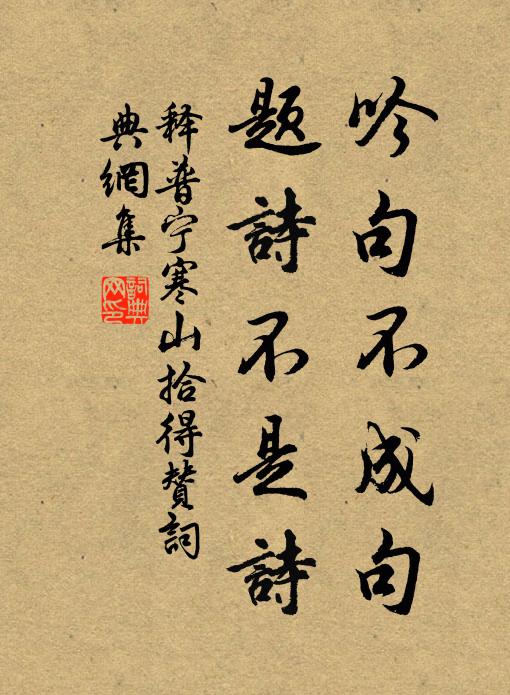 吟句不成句
题詩不是詩
释普宁寒山拾得贊詞
典網集
詞典
网印